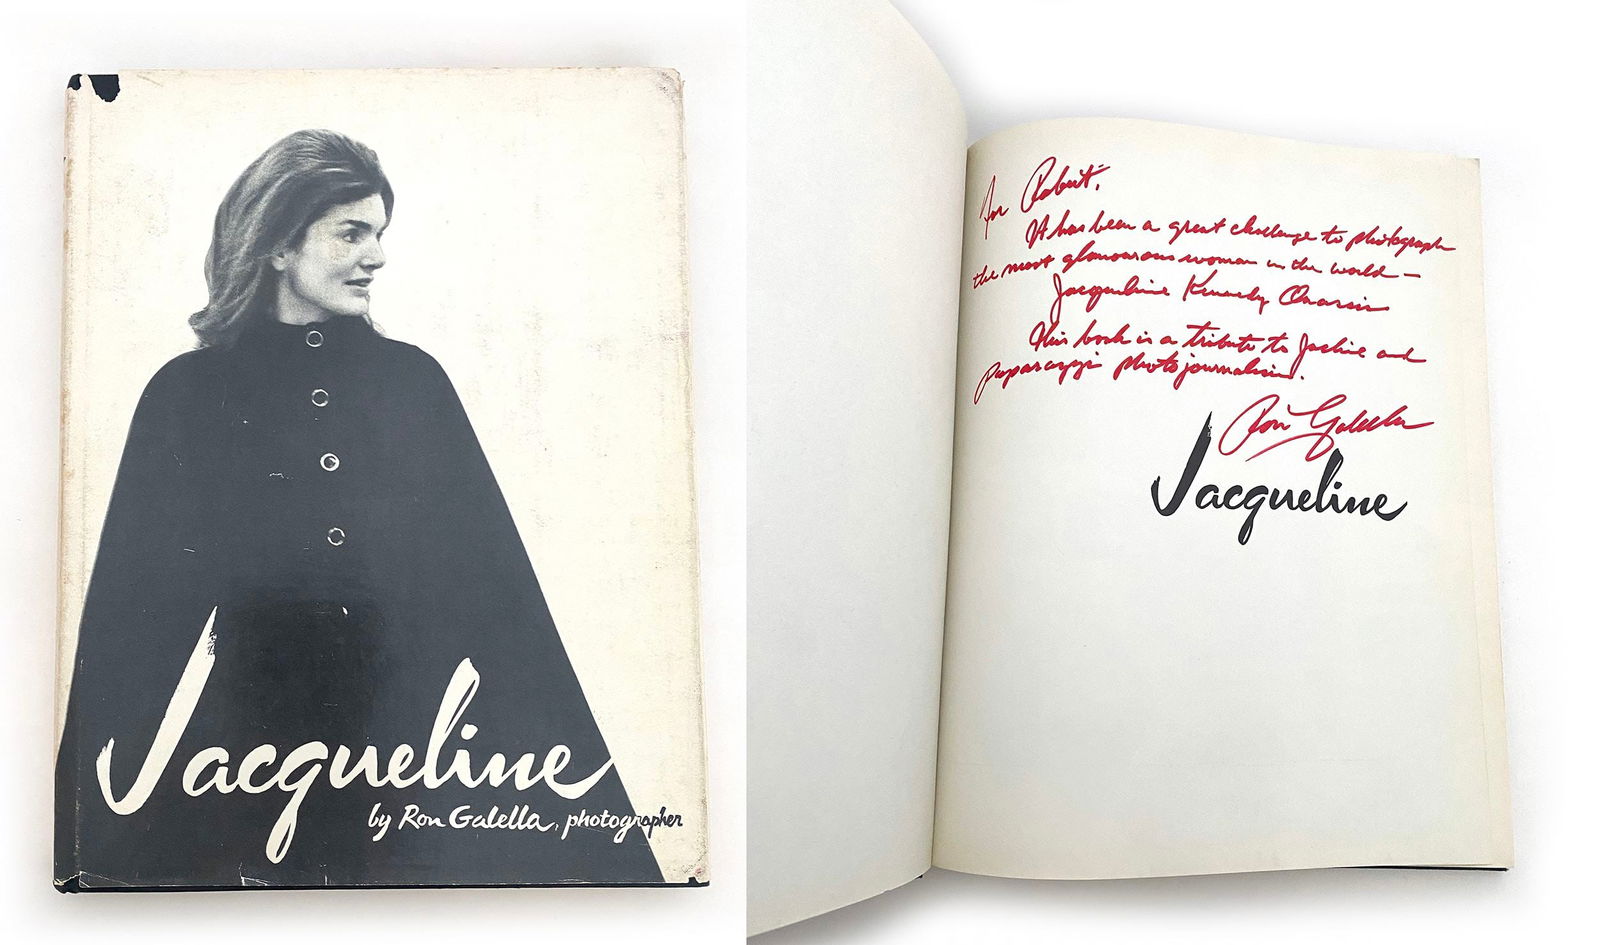 Jacqueline
by Ron Galella, photographer
for Robert,
It has been a great challenge to photograph
the most glamourous woman in the world —
Jacqueline Kennedy Onassis
This book is a tribute to Jackie and
paparazzi photojournalism.
Ron Galella
Jacqueline